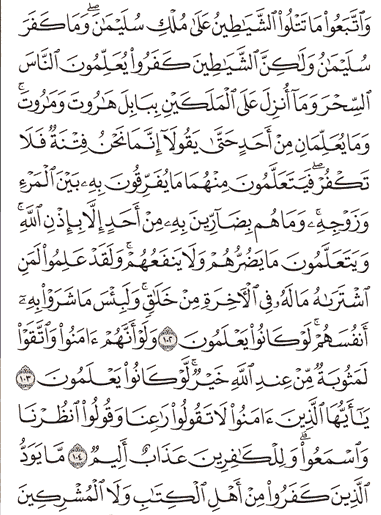 وَٱتَّبَعُوا۟ مَا تَتْلُوا۟ ٱلشَّيَٰطِينُ عَلَىٰ مُلْكِ سُلَيْمَٰنَ ۖ وَمَا كَفَرَ
سُلَيْمَٰنُ وَلَٰكِنَّ ٱلشَّيَٰطِينَ كَفَرُوا۟ يُعَلِّمُونَ ٱلنَّاسَ
ٱلسِّحْرَ وَمَآ أُنزِلَ عَلَى ٱلْمَلَكَيْنِ بِبَابِلَ هَٰرُوتَ وَمَٰرُوتَ ۚ
وَمَا يُعَلِّمَانِ مِنْ أَحَدٍ حَتَّىٰ يَقُولَآ إِنَّمَا نَحْنُ فِتْنَةٌ فَلَا
تَكْفُرْ ۖ فَيَتَعَلَّمُونَ مِنْهُمَا مَا يُفَرِّقُونَ بِهِۦ بَيْنَ ٱلْمَرْءِ
وَزَوْجِهِۦ ۚ وَمَا هُم بِضَآرِّينَ بِهِۦ مِنْ أَحَدٍ إِلَّا بِإِذْنِ ٱللَّهِ ۚ
وَيَتَعَلَّمُونَ مَا يَضُرُّهُمْ وَلَا يَنفَعُهُمْ ۚ وَلَقَدْ عَلِمُوا۟ لَمَنِ
ٱشْتَرَىٰهُ مَا لَهُۥ فِى ٱلْءَاخِرَةِ مِنْ خَلَٰقٍ ۚ وَلَبِئْسَ مَا شَرَوْا۟ بِهِۦٓ
أَنفُسَهُمْ ۚ لَوْ كَانُوا۟ يَعْلَمُونَ ١٠٢ وَلَوْ أَنَّهُمْ ءَامَنُوا۟ وَٱتَّقَوْا۟
لَمَثُوبَةٌ مِّنْ عِندِ ٱللَّهِ خَيْرٌ ۖ لَّوْ كَانُوا۟ يَعْلَمُونَ ١٠٣
يَٰٓأَيُّهَا ٱلَّذِينَ ءَامَنُوا۟ لَا تَقُولُوا۟ رَٰعِنَا وَقُولُوا۟ ٱنظُرْنَا
وَٱسْمَعُوا۟ ۗ وَلِلْكَٰفِرِينَ عَذَابٌ أَلِيمٌ ١٠٤ مَّا يَوَدُّ
ٱلَّذِينَ كَفَرُوا۟ مِنْ أَهْلِ ٱلْكِتَٰبِ وَلَا ٱلْمُشْرِكِينَ